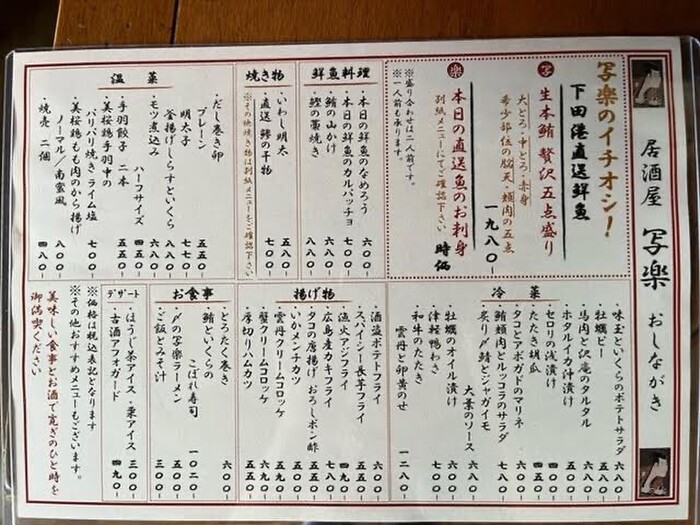 居酒屋 写楽 おしながき
写楽のイチオシ!
下田港直送鮮魚
写 生本鮪 贅沢五点盛り
大とろ・中とろ・赤身
希少部位の脳天・頬肉の五点
一九八〇-
楽 本日の直送魚のお刺身 時価
別紙メニューにてご確認下さい
※盛り合わせは二人前です。
※一人前も承ります。
鮮魚料理
・本日の鮮魚のなめろう 六〇〇-
・本日の鮮魚のカルパッチョ 七〇〇-
・鮪の山かけ 六八〇-
・鰹の藁焼き 八八〇-
焼き物
・いわし明太 五八〇-
・直送 鯵の干物 七〇〇-
※その他焼き物は別紙メニューをご確認下さい
温菜
・だし巻き卵
プレーン 五五〇-
明太子 七七〇-
釜揚げしらすといくら 八八〇-
・モツ煮込み 六八〇-
ハーフサイズ 四五〇-
・手羽餃子 二本 五五〇-
・美桜鶏手羽中の
パリパリ焼き ライム塩 七〇〇-
・美桜鶏もも肉のから揚げ
ノーマル/南蛮風 八〇〇-
・焼売 二個 四八〇-
冷菜
・味玉といくらのポテトサラダ 六八〇-
・牡蠣ピー 五八〇-
・馬肉と沢庵のタルタル
・ホタルイカ沖漬け
・セロリの浅漬け
・たたき胡瓜 四五〇-
・タコとアボガドのマリネ
・鮪頬肉とルッコラのサラダ
・炙り〆鯖とジャガイモ
大葉のソース 六八〇-
・牡蠣のオイル漬け 六〇〇-
・津軽鴨わさ 七〇〇-
・和牛のたたき
雲丹と卵黄のせ 一二八〇-
揚げ物
・酒盗ポテトフライ 六〇〇-
・スパイシー長芋フライ 五〇〇-
・漁火アジフライ 四九〇-
・広島産カキフライ 七八〇-
・タコの唐揚げ おろしポン酢
・いかメンチカツ
・雲丹クリームコロッケ
・蟹クリームコロッケ
・厚切りハムカツ 五五〇-
お食事
・とろたく巻き 六〇〇-
・鮪といくらの
こぼれ寿司 一〇二〇-
・〆の写楽ラーメン 五〇〇-
・ご飯とみそ汁 三〇〇-
デザート
・ほうじ茶アイス・栗アイス 三〇〇-
・古酒アフォガード 四九〇-
※価格は税込表記となります
※その他おすすめメニューもございます。
美味しい食事とお酒で寛ぎのひと時を
御満喫ください